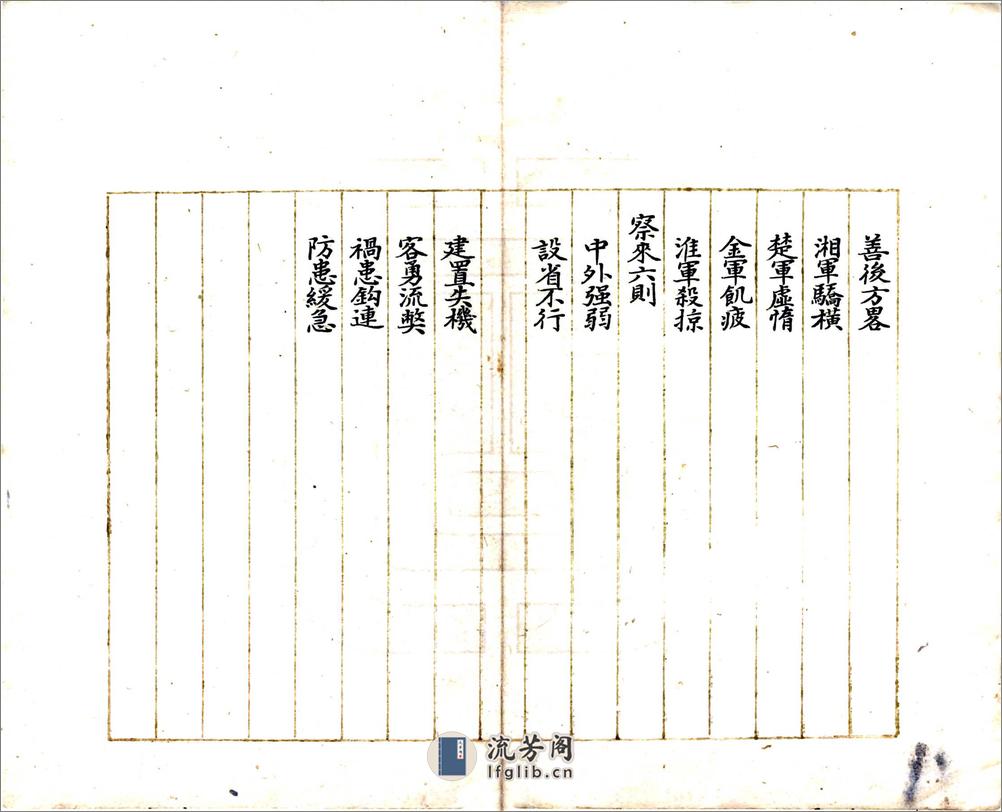 善後方畧
湘軍驕橫
楚軍虛惰
金軍飢疲
淮軍殺掠
察來六則
中外强弱
設省不行
建置失機
客勇流弊
禍患鈎連
防患緩急
流芳阁
lfglib.cn